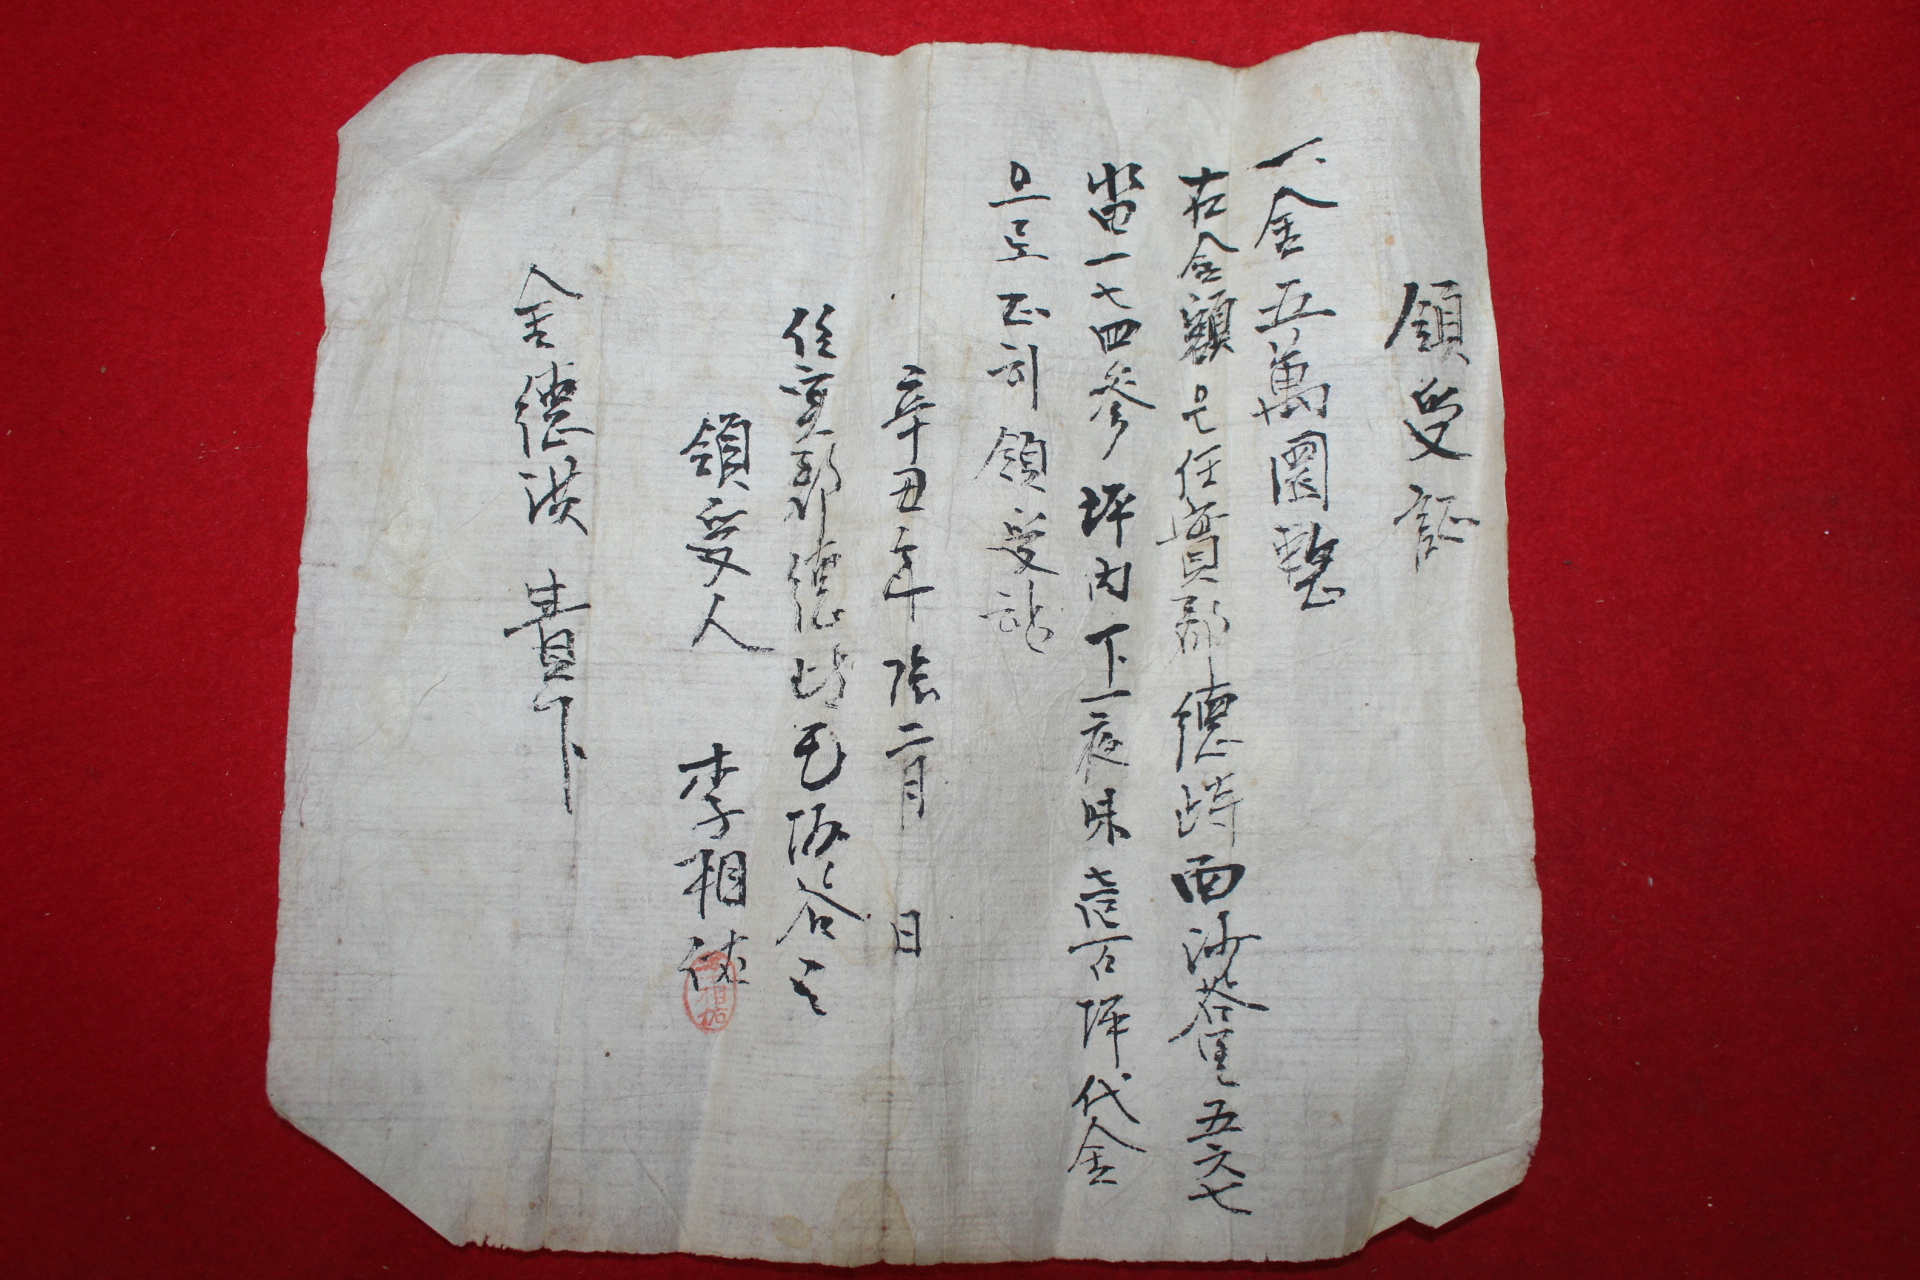 領受証
一、金五萬圜整
右金額은任實郡德峙面沙谷里五六七
畓一七四參坪內下一夜味壱百坪代金
으로正히領受함
辛丑年陰二月 日
任實郡德峙 谷
領受人 李相祐
金德洪 貴下
李相祐